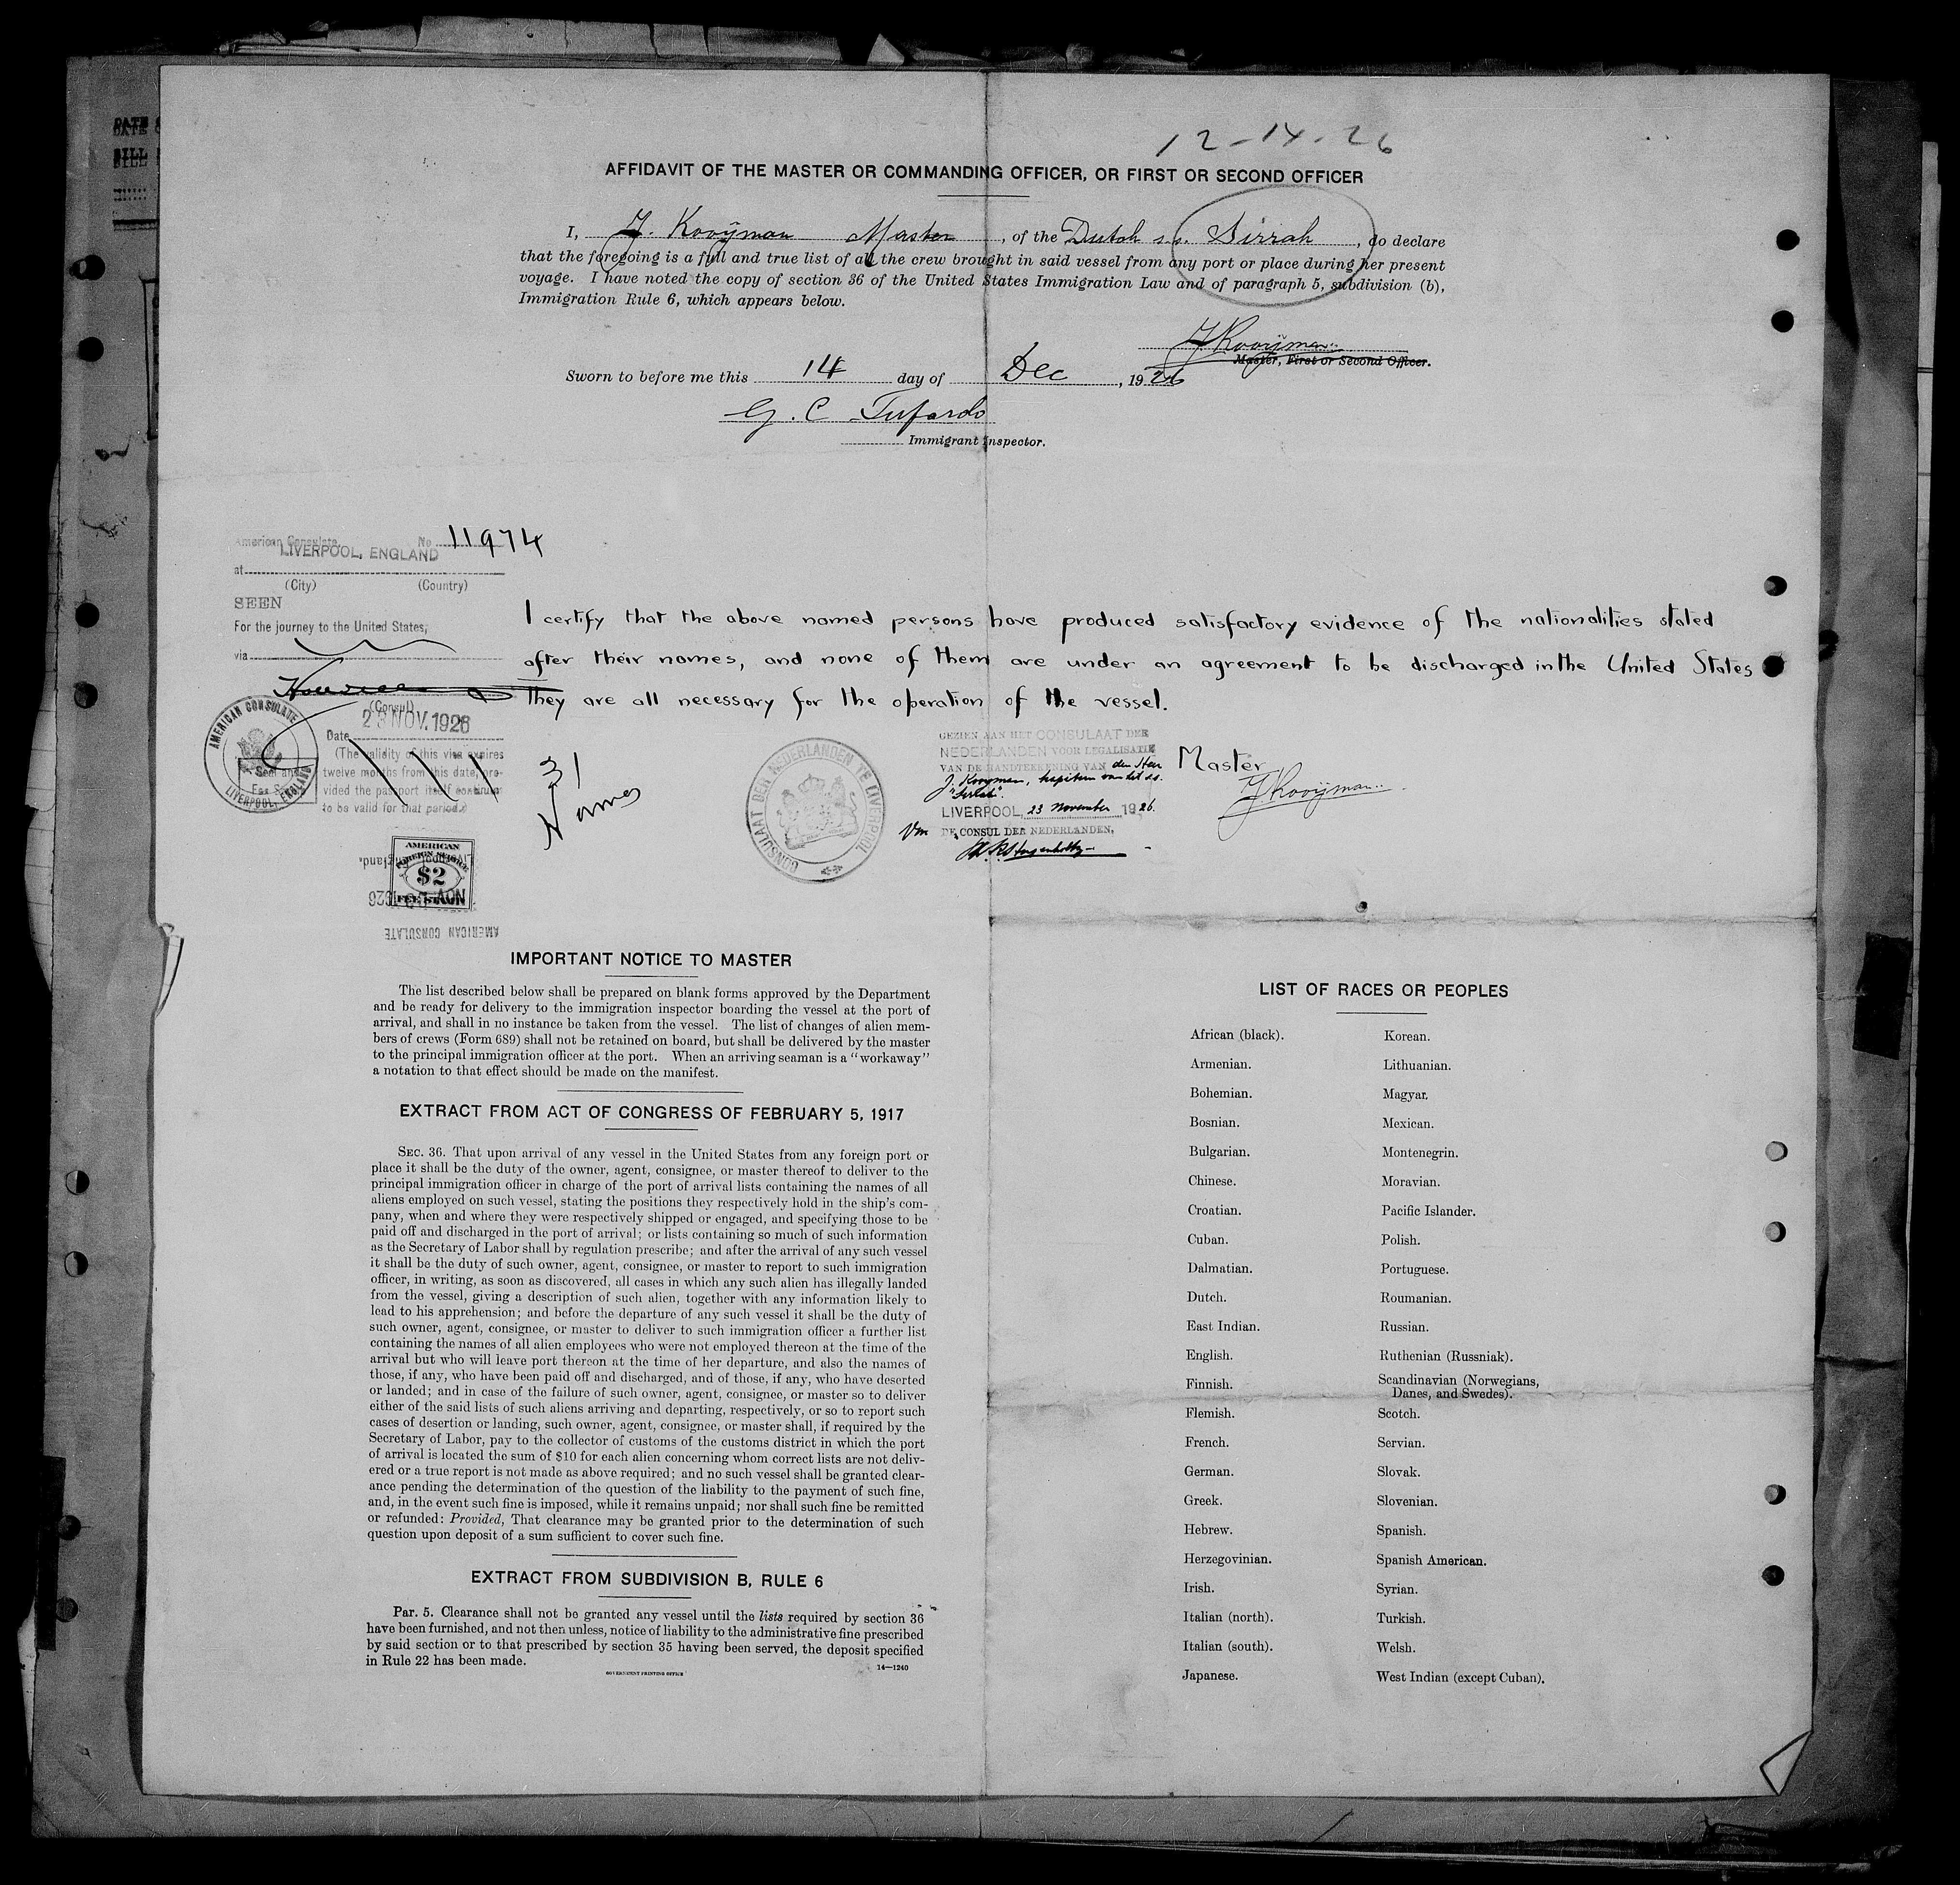 12-14-26
AFFIDAVIT OF THE MASTER OR COMMANDING OFFICER, OR FIRST OR SECOND OFFICER
I, J. Kooÿman Master, of the Dutch s.s. Sirrah, do declare
that the foregoing is a full and true list of all the crew brought in said vessel from any port or place during her present
voyage. I have noted the copy of section 36 of the United States Immigration Law and of paragraph 5, subdivision (b),
Immigration Rule 6, which appears below.
J Kooÿman
Master, First or Second Officer.
Sworn to before me this 14 day of Dec, 1926
G. C Tufardo
Immigrant Inspector.
American Consulate No 11974
LIVERPOOL, ENGLAND
at
(City) (Country)
SEEN
For the journey to the United States,
via
(Consul)
Date 23 NOV. 1926
(The validity of this visa expires
twelve months from this date, pro-
vided the passport itself continues
to be valid for that period.)
AMERICAN CONSULATE
LIVERPOOL, ENGLAND
I certify that the above named persons have produced satisfactory evidence of the nationalities stated
after their names, and none of them are under an agreement to be discharged in the United States
they are all necessary for the operation of the vessel.
31
Names
CONSULAAT DER NEDERLANDEN TE LIVERPOOL
GEZIEN AAN HET CONSULAAT DER
NEDERLANDEN VOOR LEGALISATIE
VAN DE HANDTEEKENING VAN den Heer
J. Kooyman, kapitein van het ss.
"Sirrah".
LIVERPOOL, 23 November 1926.
DE CONSUL DER NEDERLANDEN,
Master
J Kooÿman
AMERICAN
FOREIGN SERVICE
$2
FEE STAMP
AMERICAN CONSULATE
IMPORTANT NOTICE TO MASTER
The list described below shall be prepared on blank forms approved by the Department
and be ready for delivery to the immigration inspector boarding the vessel at the port of
arrival, and shall in no instance be taken from the vessel. The list of changes of alien mem-
bers of crews (Form 689) shall not be retained on board, but shall be delivered by the master
to the principal immigration officer at the port. When an arriving seaman is a "workaway"
a notation to that effect should be made on the manifest.
EXTRACT FROM ACT OF CONGRESS OF FEBRUARY 5, 1917
SEC. 36. That upon arrival of any vessel in the United States from any foreign port or
place it shall be the duty of the owner, agent, consignee, or master thereof to deliver to the
principal immigration officer in charge of the port of arrival lists containing the names of all
aliens employed on such vessel, stating the positions they respectively hold in the ship's com-
pany, when and where they were respectively shipped or engaged, and specifying those to be
paid off and discharged in the port of arrival; or lists containing so much of such information
as the Secretary of Labor shall by regulation prescribe; and after the arrival of any such vessel
it shall be the duty of such owner, agent, consignee, or master to report to such immigration
officer, in writing, as soon as discovered, all cases in which any such alien has illegally landed
from the vessel, giving a description of such alien, together with any information likely to
lead to his apprehension; and before the departure of any such vessel it shall be the duty of
such owner, agent, consignee, or master to deliver to such immigration officer a further list
containing the names of all alien employees who were not employed thereon at the time of the
arrival but who will leave port thereon at the time of her departure, and also the names of
those, if any, who have been paid off and discharged, and of those, if any, who have deserted
or landed; and in case of the failure of such owner, agent, consignee, or master so to deliver
either of the said lists of such aliens arriving and departing, respectively, or so to report such
cases of desertion or landing, such owner, agent, consignee, or master shall, if required by the
Secretary of Labor, pay to the collector of customs of the customs district in which the port
of arrival is located the sum of $10 for each alien concerning whom correct lists are not deliv-
ered or a true report is not made as above required; and no such vessel shall be granted clear-
ance pending the determination of the question of the liability to the payment of such fine,
and, in the event such fine is imposed, while it remains unpaid; nor shall such fine be remitted
or refunded: Provided, That clearance may be granted prior to the determination of such
question upon deposit of a sum sufficient to cover such fine.
EXTRACT FROM SUBDIVISION B, RULE 6
Par. 5. Clearance shall not be granted any vessel until the lists required by section 36
have been furnished, and not then unless, notice of liability to the administrative fine prescribed
by said section or to that prescribed by section 35 having been served, the deposit specified
in Rule 22 has been made.
GOVERNMENT PRINTING OFFICE 14—1240
LIST OF RACES OR PEOPLES
African (black). Korean.
Armenian. Lithuanian.
Bohemian. Magyar.
Bosnian. Mexican.
Bulgarian. Montenegrin.
Chinese. Moravian.
Croatian. Pacific Islander.
Cuban. Polish.
Dalmatian. Portuguese.
Dutch. Roumanian.
East Indian. Russian.
English. Ruthenian (Russniak).
Finnish. Scandinavian (Norwegians,
Danes, and Swedes).
Flemish. Scotch.
French. Servian.
German. Slovak.
Greek. Slovenian.
Hebrew. Spanish.
Herzegovinian. Spanish American.
Irish. Syrian.
Italian (north). Turkish.
Italian (south). Welsh.
Japanese. West Indian (except Cuban).